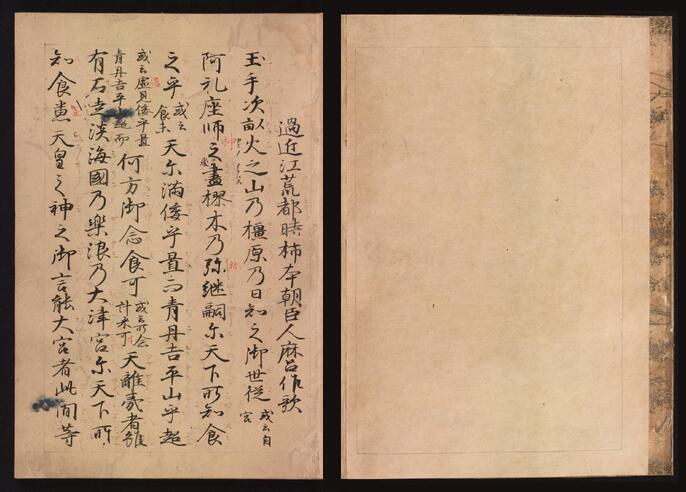 過近江荒都時柿本朝臣人麻呂作歌
玉手次畝火之山乃橿原乃日知之御世従 或云自宮
阿礼座師 神之盡樛木乃弥継嗣尓天下所知食
之乎 或云食来 天尓満倭乎置而青丹吉平山乎超
或云虚見倭乎置青丹吉平山超而 何方御念食可 或云所念計米可 天離夷者雖
有石走淡海國乃樂浪乃大津宮尓天下所
知食兼天皇之神之御言能大宮者此間等